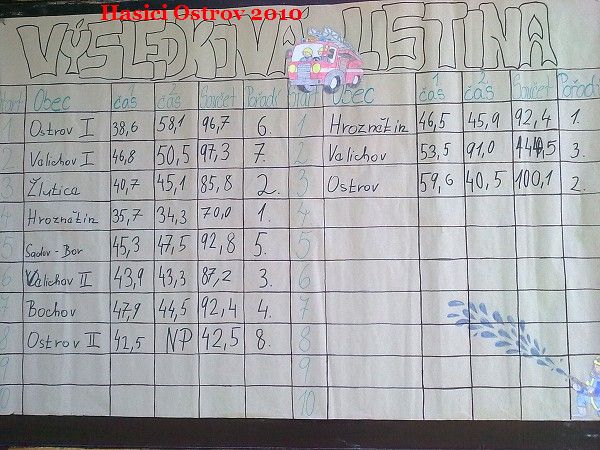 Hasici Ostrov 2010
VÝSLEDKOVÁ LISTINA
Start Obec 1 čas 2 čas Součet Pořadí Start Obec 1 čas 2 čas Součet Pořadí
1 Ostrov I 38,6 58,1 96,7 6. 1 Hroznětín 46,5 45,9 92,4 1.
2 Valichov I 46,8 50,5 97,3 7. 2 Valichov 53,5 91,0 144,5 3.
3 Žlutice 40,7 45,1 85,8 2. 3 Ostrov 59,6 40,5 100,1 2.
4 Hroznětín 35,7 34,3 70,0 1. 4
5 Sadov - Bor 45,3 47,5 92,8 5. 5
6 Valichov II 43,9 43,3 87,2 3. 6
7 Bochov 47,9 44,5 92,4 4. 7
8 Ostrov II 42,5 NP 42,5 8. 8
9 9
10 10